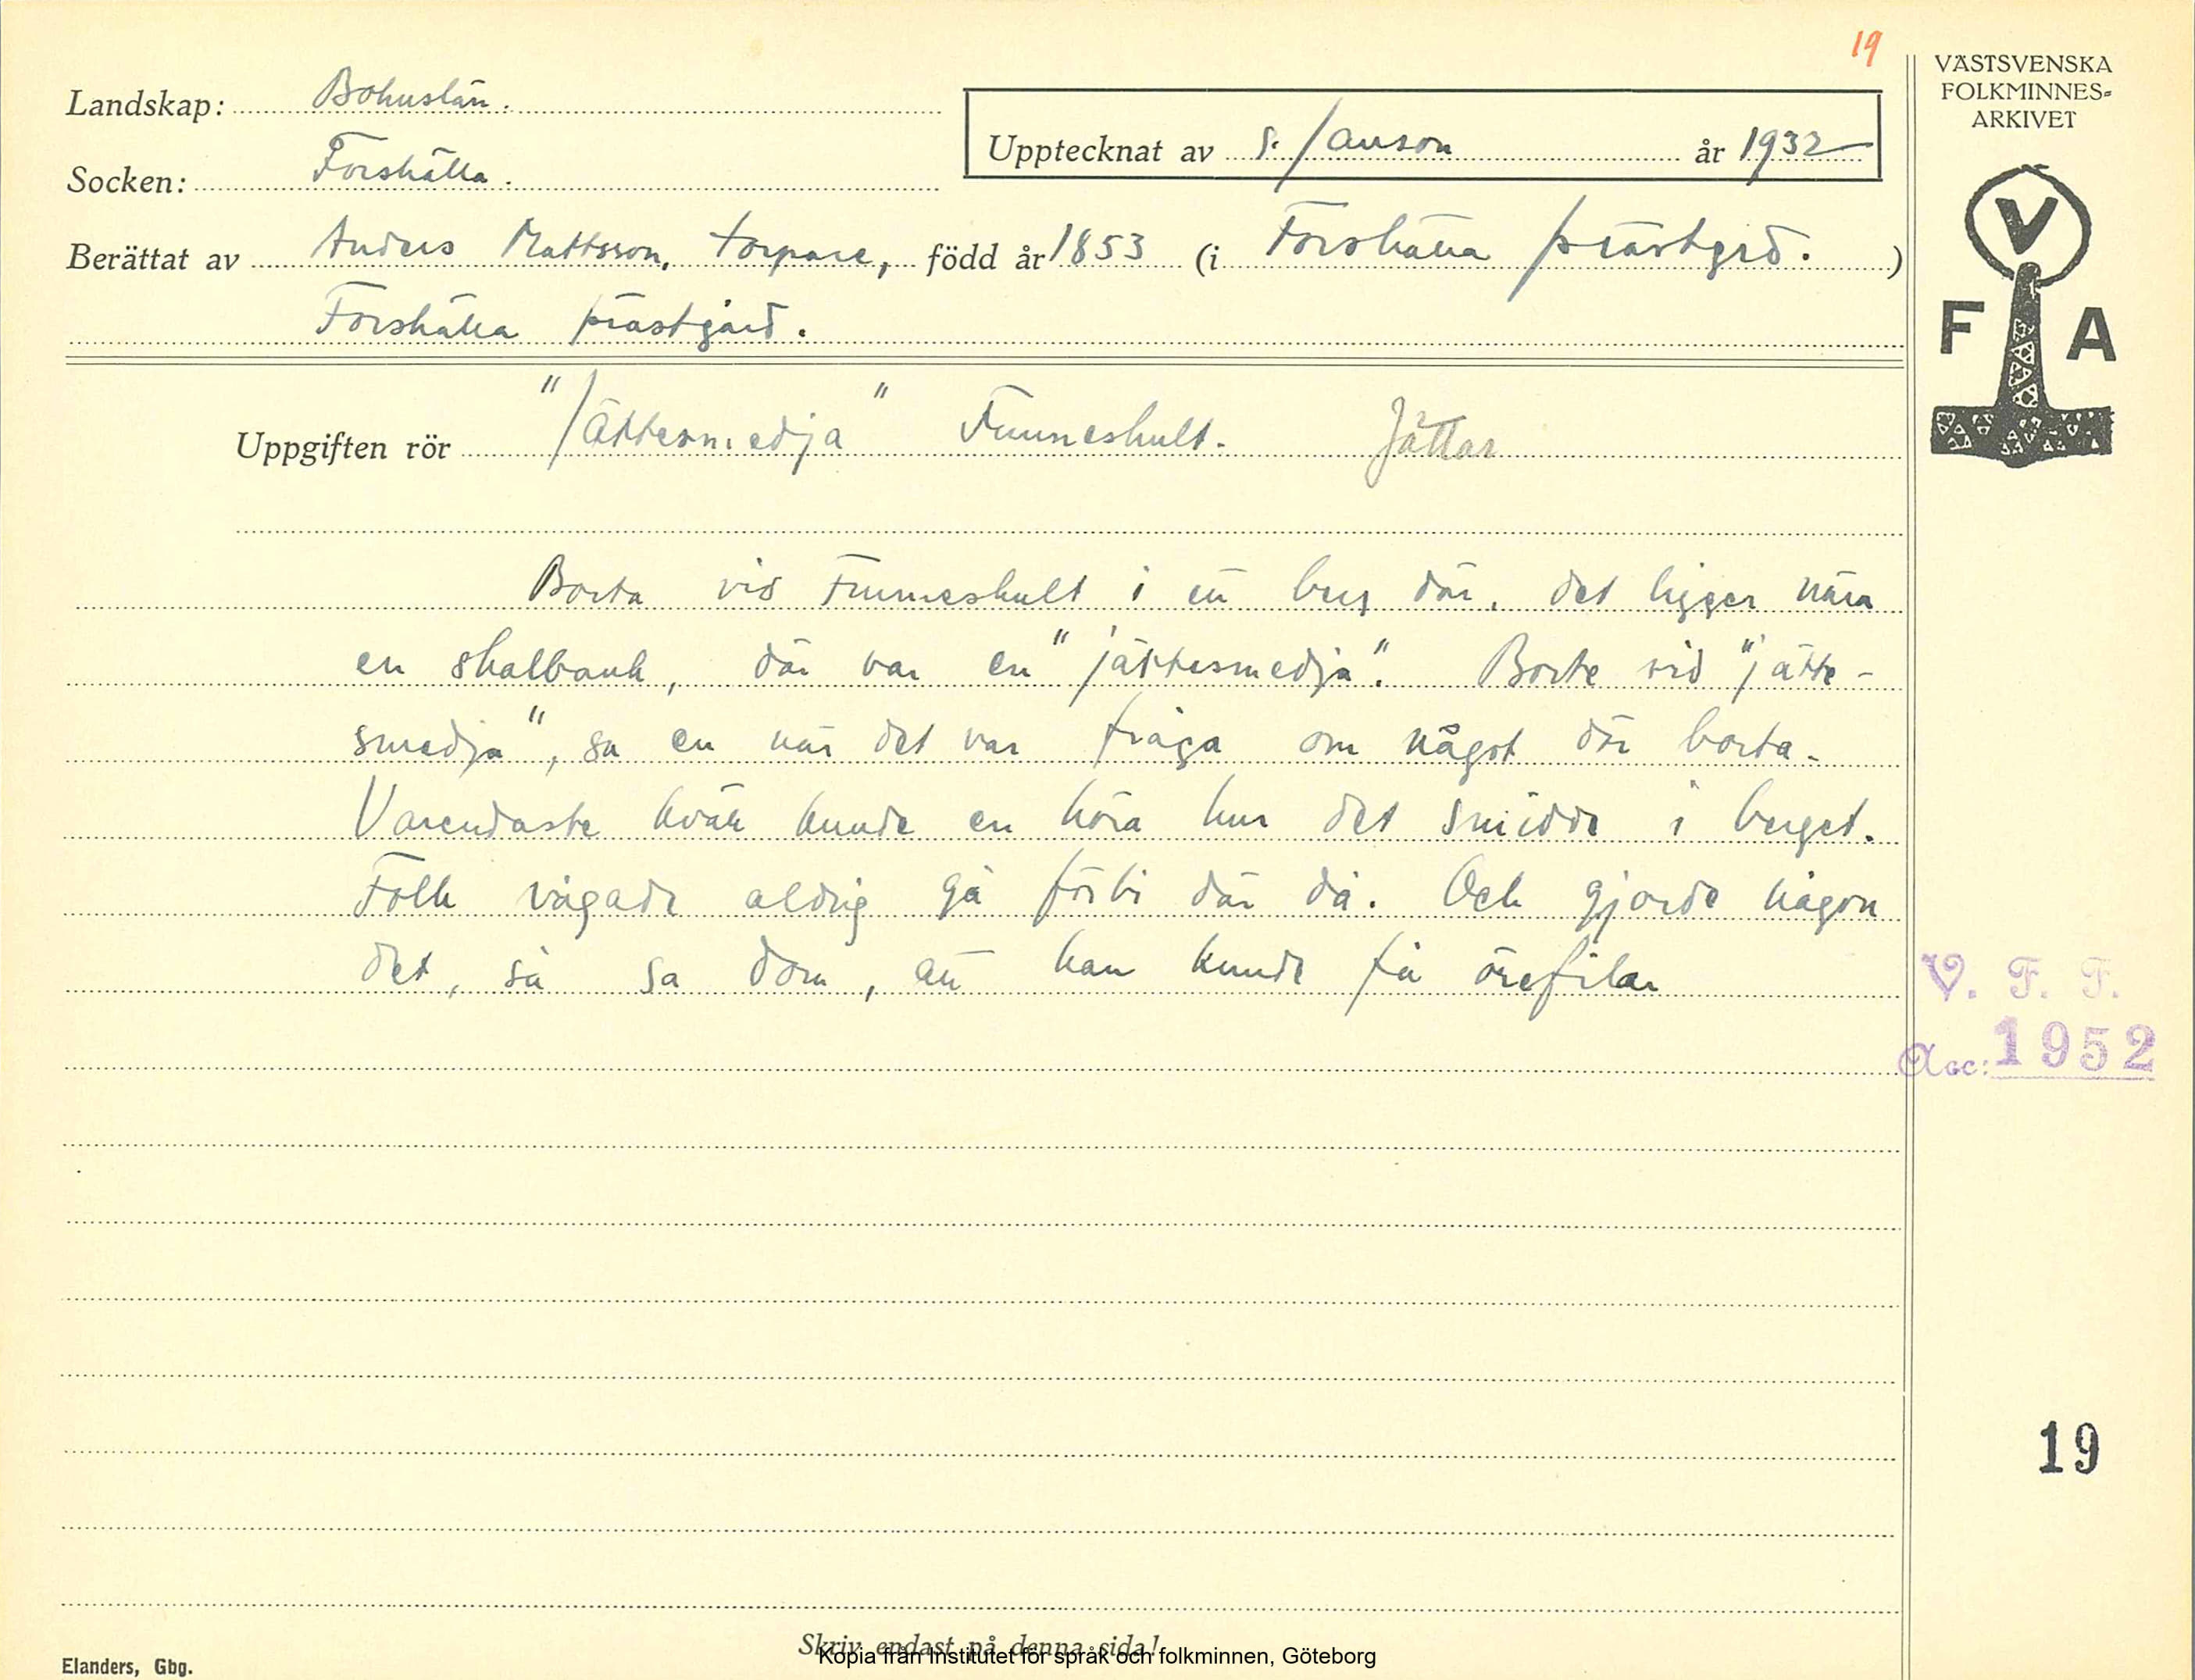 19
VÄSTSVENSKA
FOLKMINNES-
ARKIVET
Landskap: Bohuslän.
Upptecknat av S. Janson år 1932
Socken: Forshälla.
Berättat av Anders Mattsson, torpare, född år 1853 (i Forshälla prästgrd. )
Forshälla prästgård.
V
F A
Uppgiften rör "Jättesmedja" Funneshult. Jättar
Borta vid Funneshult i ett berg där, det ligger nära
en skalbank, där var en "jättesmedja". Borte vid "jätte-
smedja", sa en när det var fråga om något där borta.
Varendaste kväll kunde en höra hur det smidde i berget.
Folk vågade aldrig gå förbi där då. Och gjorde någon
det, så sa dom, att han kunde få örefilar
V. F. F.
Acc: 1952
19
Skriv endast på denna sida!
Kopia från Institutet för språk och folkminnen, Göteborg
Elanders, Gbg.